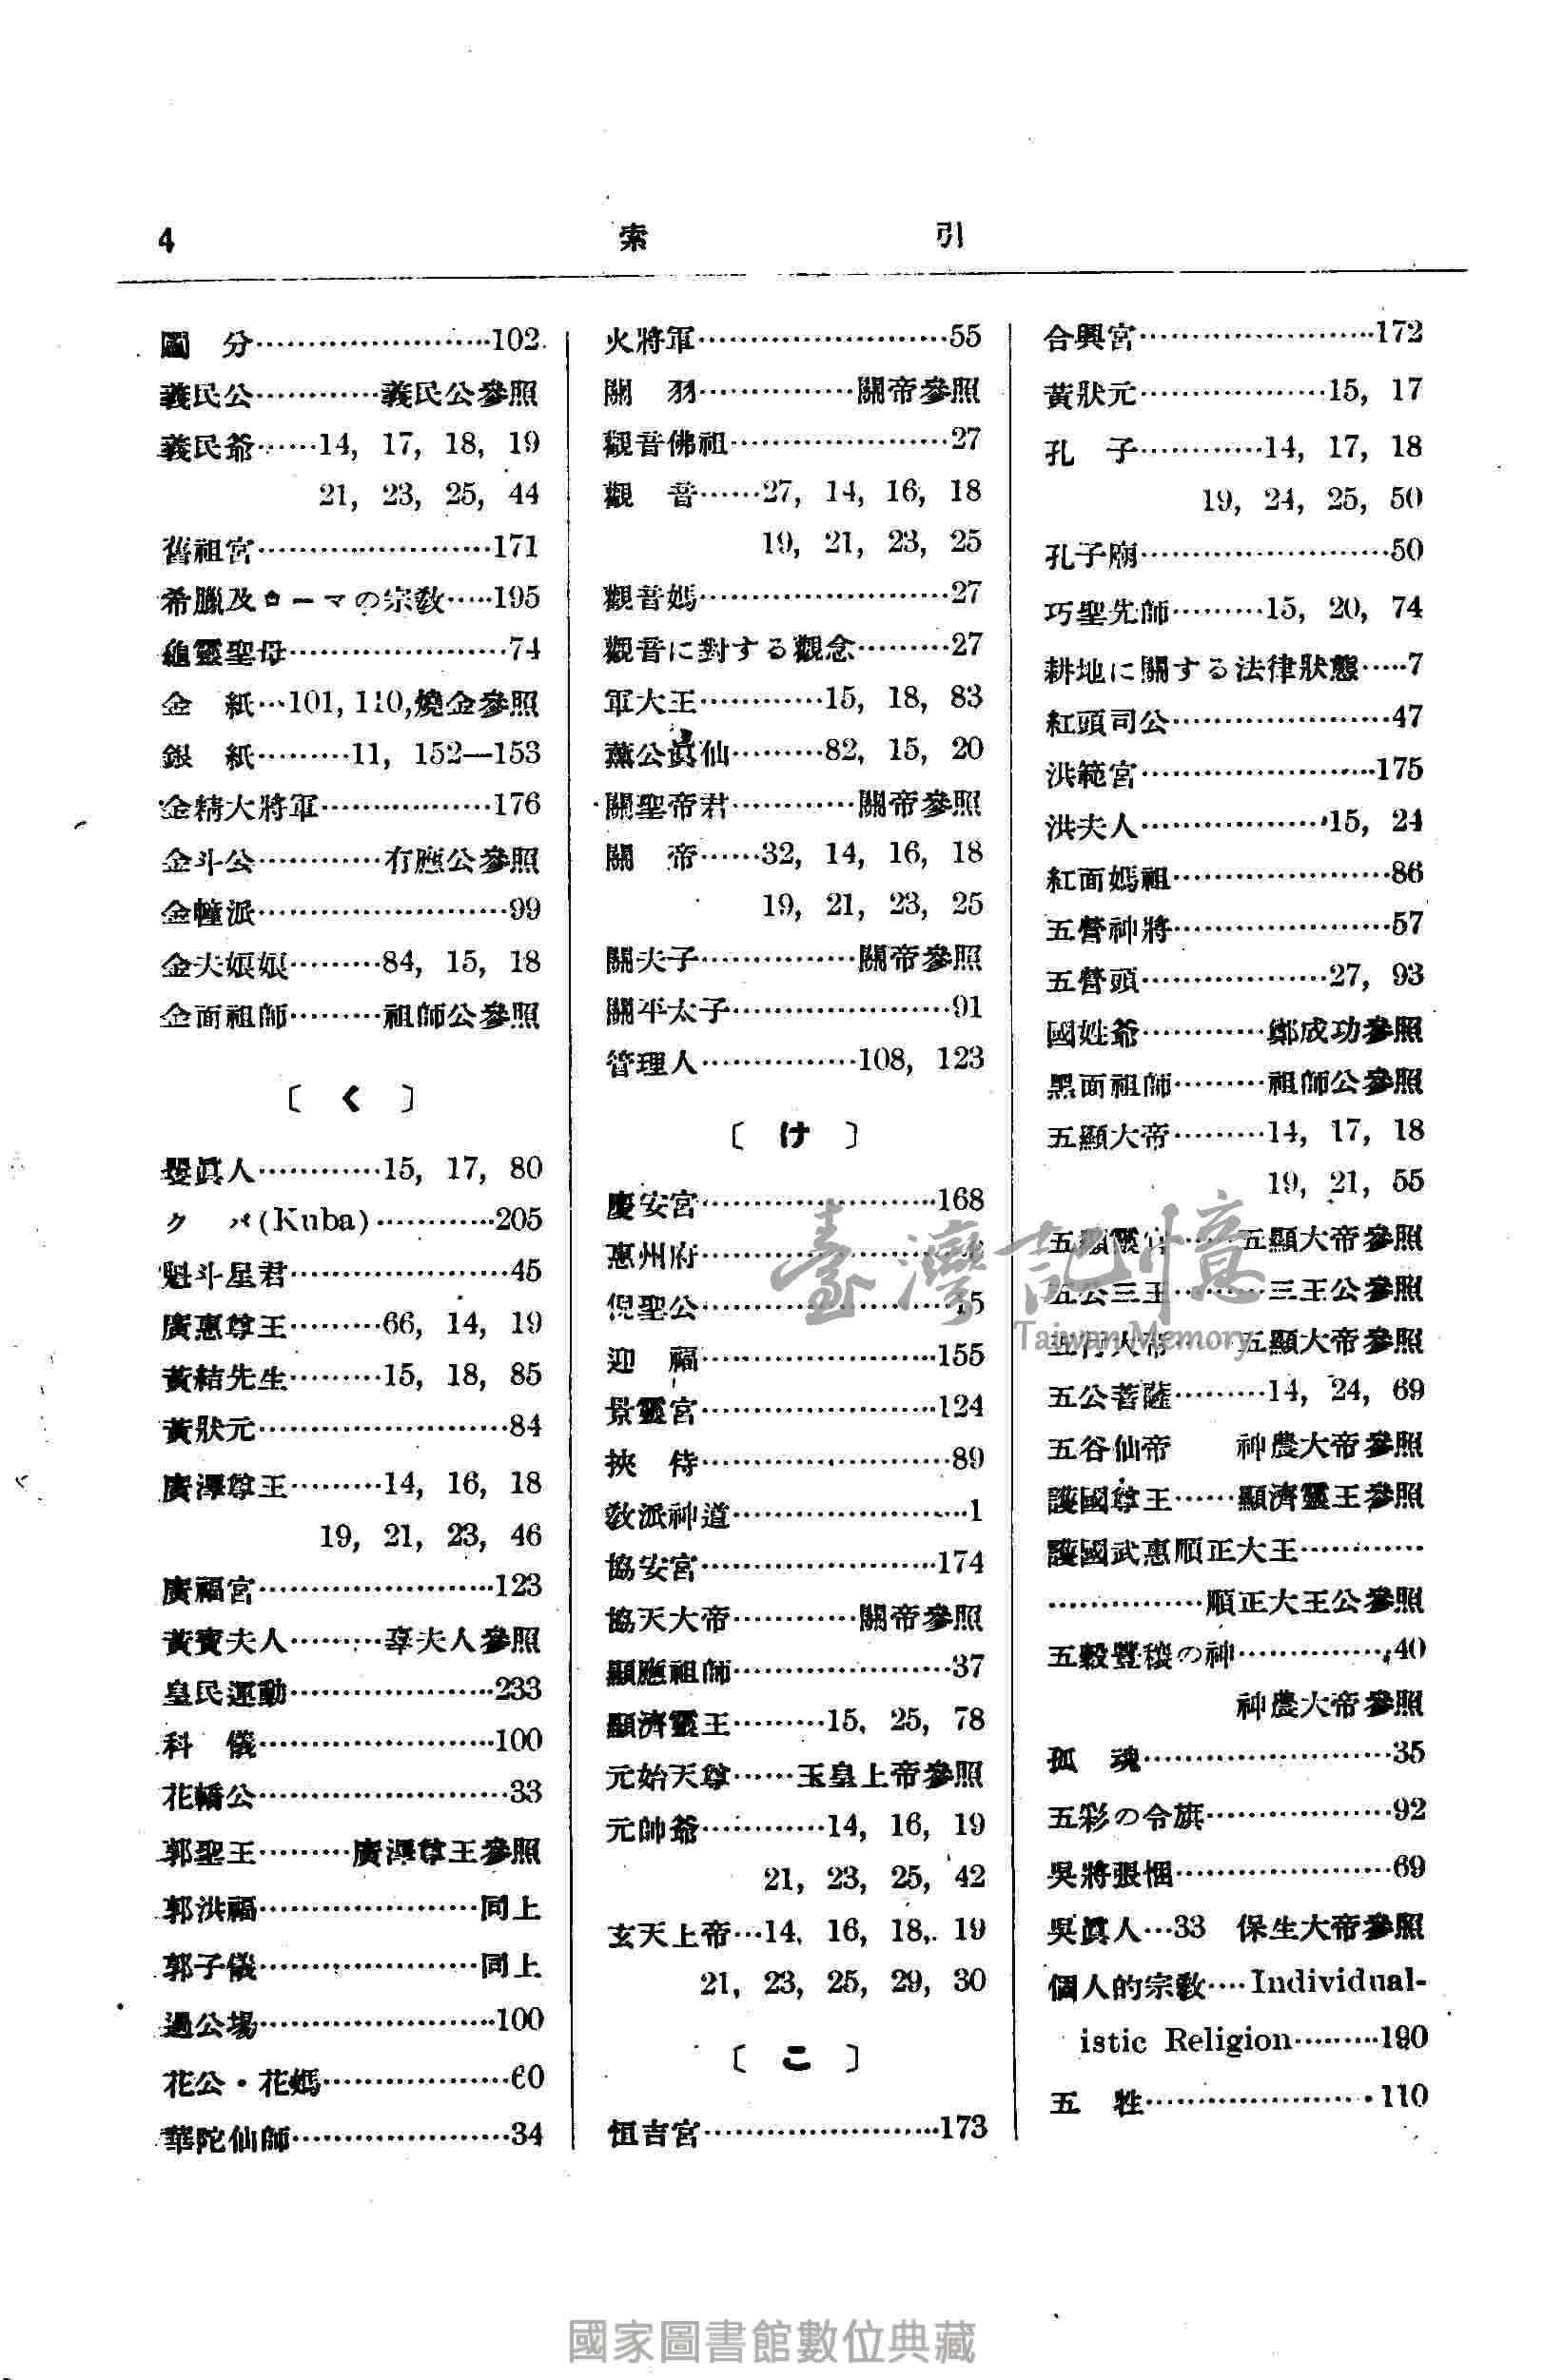 4 索引
鬮 分……………………102
義民公…………義民公參照
義民爺……14, 17, 18, 19
21, 23, 25, 44
舊祖宮……………………171
希臘及ローマの宗教……195
龜靈聖母…………………74
金 紙…101, 110,燒金參照
銀 紙………11, 152—153
金精大將軍………………176
金斗公…………有應公參照
金幢派……………………99
金夫娘娘………84, 15, 18
金面祖師………祖師公參照
〔 く 〕
眞人…………15, 17, 80
ク バ(Kuba)…………205
魁斗星君…………………45
廣惠尊王………66, 14, 19
黃結先生………15, 18, 85
黃狀元……………………84
廣澤尊王………14, 16, 18
19, 21, 23, 46
廣福宮……………………123
黃寶夫人………夫人參照
皇民運動…………………233
科 儀……………………100
花轎公……………………33
郭聖王………廣澤尊王參照
郭洪福…………………同上
郭子儀…………………同上
過公場……………………100
花公・花媽………………60
華陀仙師…………………34
火將軍……………………55
關 羽……………關帝參照
觀音佛祖…………………27
觀 音……27, 14, 16, 18
19, 21, 23, 25
觀音媽……………………27
觀音に對する觀念………27
軍大王…………15, 18, 83
薰公眞仙………82, 15, 20
關聖帝君…………關帝參照
關 帝……32, 14, 16, 18
19, 21, 23, 25
關夫子……………關帝參照
關平太子…………………91
管理人……………108, 123
〔 け 〕
慶安宮……………………168
惠州府……………………
倪聖公……………………
迎 福……………………155
景靈宮……………………124
挾 侍……………………89
敎派神道…………………1
協安宮……………………174
協天大帝…………關帝參照
顯應祖師…………………37
顯濟靈王………15, 25, 78
元始天尊……玉皇上帝參照
元帥爺…………14, 16, 19
21, 23, 25, 42
玄天上帝…14, 16, 18, 19
21, 23, 25, 29, 30
〔 こ 〕
恒吉宮……………………173
合興宮……………………172
黃狀元………………15, 17
孔 子…………14, 17, 18
19, 24, 25, 50
孔子廟……………………50
巧聖先師………15, 20, 74
耕地に關する法律狀態……7
紅頭司公…………………47
洪範宮……………………175
洪夫人………………15, 24
紅面媽祖…………………86
五營神將…………………57
五營頭………………27, 93
國姓爺…………鄭成功參照
黑面祖師………祖師公參照
五顯大帝………14, 17, 18
19, 21, 55
五顯靈官……五顯大帝參照
五公三王………三王公參照
五行大帝……五顯大帝參照
五公菩薩………14, 24, 69
五谷仙帝 神農大帝參照
護國尊王……顯濟靈王參照
護國武惠順正大王…………
……………順正大王公參照
五穀豐穰の神……………40
神農大帝參照
孤 魂……………………35
五彩の令旗………………92
吳將張悃…………………69
吳眞人…33 保生大帝參照
個人的宗敎…Individual-
istic Religion………190
五 牲……………………110
臺灣記憶
Taiwan Memory
國家圖書館數位典藏